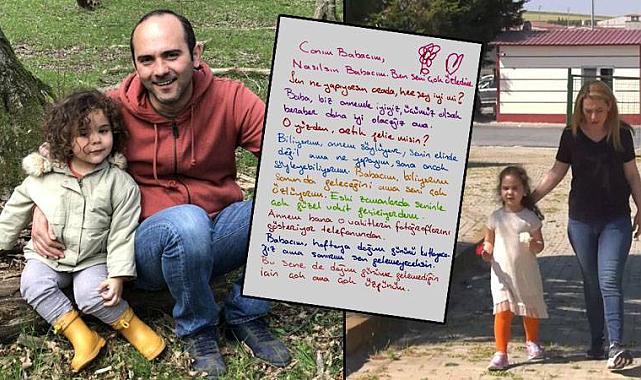 Canım Babacım,
Nasılsın Babacım. Ben seni çok özledim.
Sen ne yapıyorsun orada, her şey iyi mi?
Baba, biz annemle iyiyiz, üçümüz olsak
beraber daha iyi olacağız ama.
O yüzden, artık gelir misin?
Biliyorum, annem söylüyor, senin elinde
değil ama ne yapayım, sana ancak
söyleyebiliyorum. Babacım, biliyorum
sonunda geleceğini ama seni çok
özlüyorum. Eski zamanlarda seninle
çok güzel vakit geçiriyordum.
Annem bana o vakitlerin fotoğraflarını
gösteriyor telefonundan.
Babacım, haftaya doğum gününü kutlayaca-
ğız ama sanırım sen gelemeyeceksin.
Bu sene de doğum günüme gelemediğin
için çok ama çok üzgünüm.